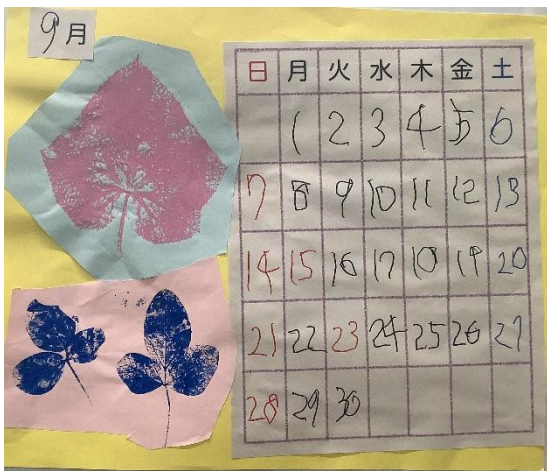 9月
日 月 火 水 木 金 土
1 2 3 4 5 6
7 8 9 10 11 12 13
14 15 16 17 18 19 20
21 22 23 24 25 26 27
28 29 30